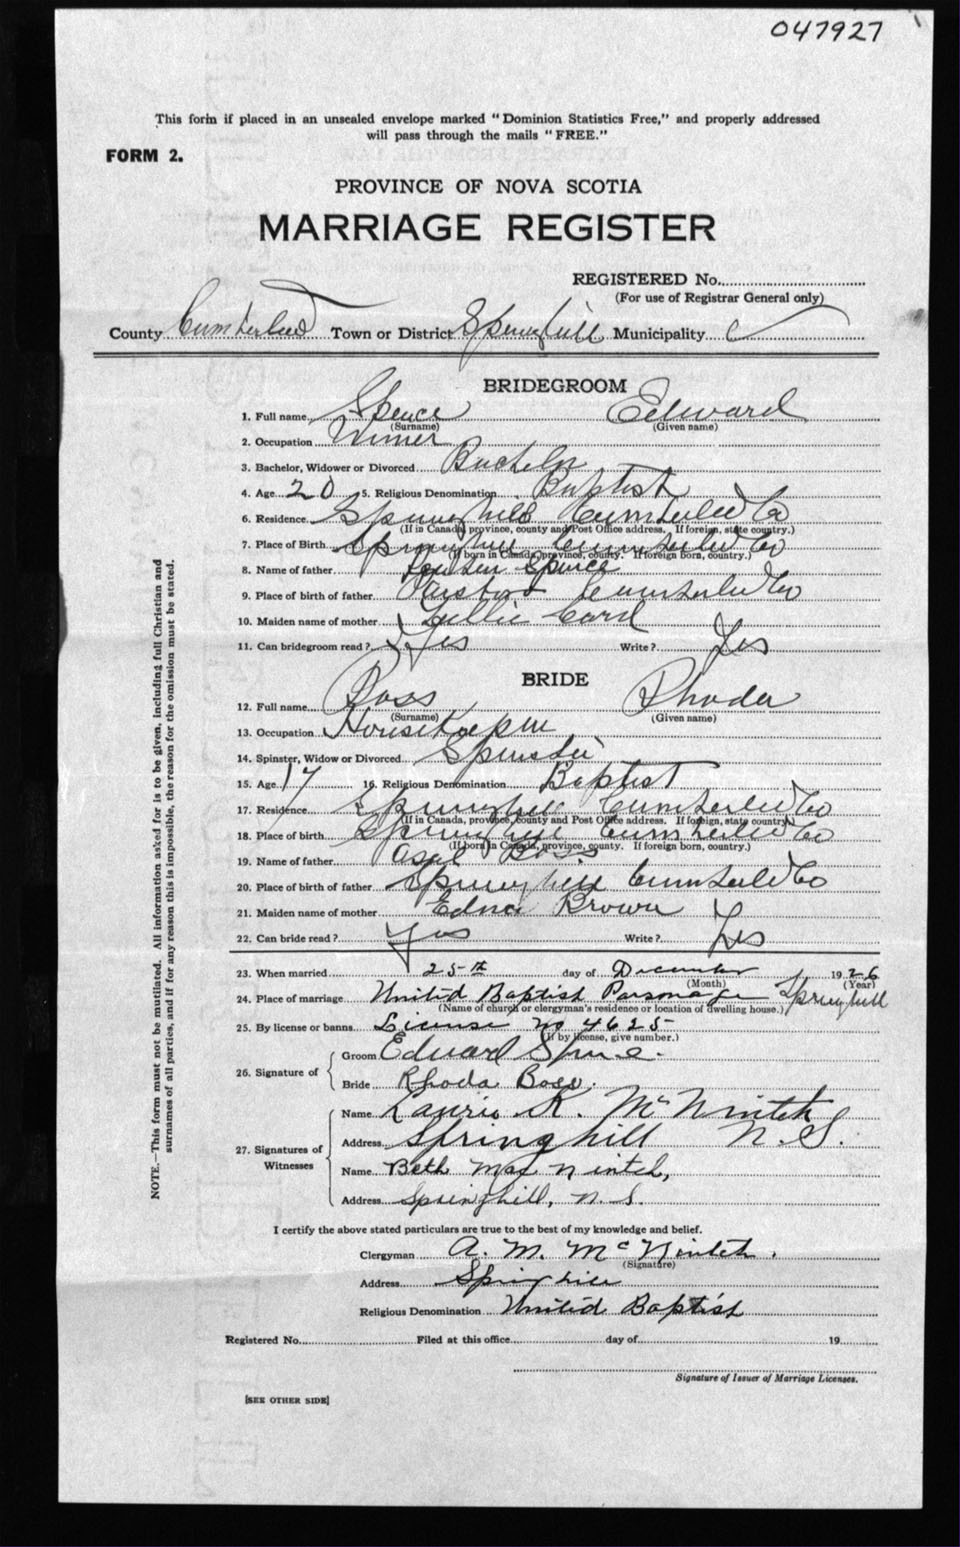 047927
This form if placed in an unsealed envelope marked "Dominion Statistics Free," and properly addressed
will pass through the mails "FREE."
FORM 2.
PROVINCE OF NOVA SCOTIA
MARRIAGE REGISTER
REGISTERED No.
(For use of Registrar General only)
County Cumberland Town or District Springhill Municipality
BRIDEGROOM
1. Full name Spence Edward
(Surname) (Given name)
2. Occupation Miner
3. Bachelor, Widower or Divorced Bachelor
4. Age 20 5. Religious Denomination Baptist
6. Residence Springhill Cumberland Co
(If in Canada, province, county and Post Office address. If foreign, state country.)
7. Place of Birth Springhill Cumberland Co
(If born in Canada, province, county. If foreign born, country.)
8. Name of father Spence
9. Place of birth of father Cumberland Co
10. Maiden name of mother Lillie Card
11. Can bridegroom read? Yes Write? Yes
BRIDE
12. Full name Boss Rhoda
(Surname) (Given name)
13. Occupation Housekeeper
14. Spinster, Widow or Divorced Spinster
15. Age 17 16. Religious Denomination Baptist
17. Residence Springhill Cumberland Co
(If in Canada, province, county and Post Office address. If foreign, state country)
18. Place of birth Springhill Cumberland Co
(If born in Canada, province, county. If foreign born, country.)
19. Name of father Boss
20. Place of birth of father Springhill Cumberland Co
21. Maiden name of mother Edna Brown
22. Can bride read? Yes Write? Yes
23. When married 25th day of December 1926
(Month) (Year)
24. Place of marriage United Baptist Parsonage Springhill
(Name of church or clergyman's residence or location of dwelling house.)
25. By license or banns License no 4625
(If by license, give number.)
26. Signature of
Groom Edward Spence
Bride Rhoda Boss.
27. Signatures of Witnesses
Name Laurie K. McNintch
Address Springhill N.S.
Name Beth MacNintch,
Address Springhill, N.S.
I certify the above stated particulars are true to the best of my knowledge and belief.
Clergyman A. M. McNintch.
(Signature)
Address Springhill
Religious Denomination United Baptist
Registered No. Filed at this office day of 19
Signature of Issuer of Marriage Licenses.
[SEE OTHER SIDE]
NOTE.—This form must not be mutilated. All information asked for is to be given, including full Christian and
surnames of all parties, and if for any reason this is impossible, the reason for the omission must be stated.